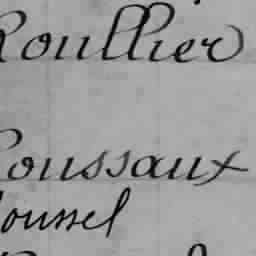 Roullier
Roussaux
Roussel